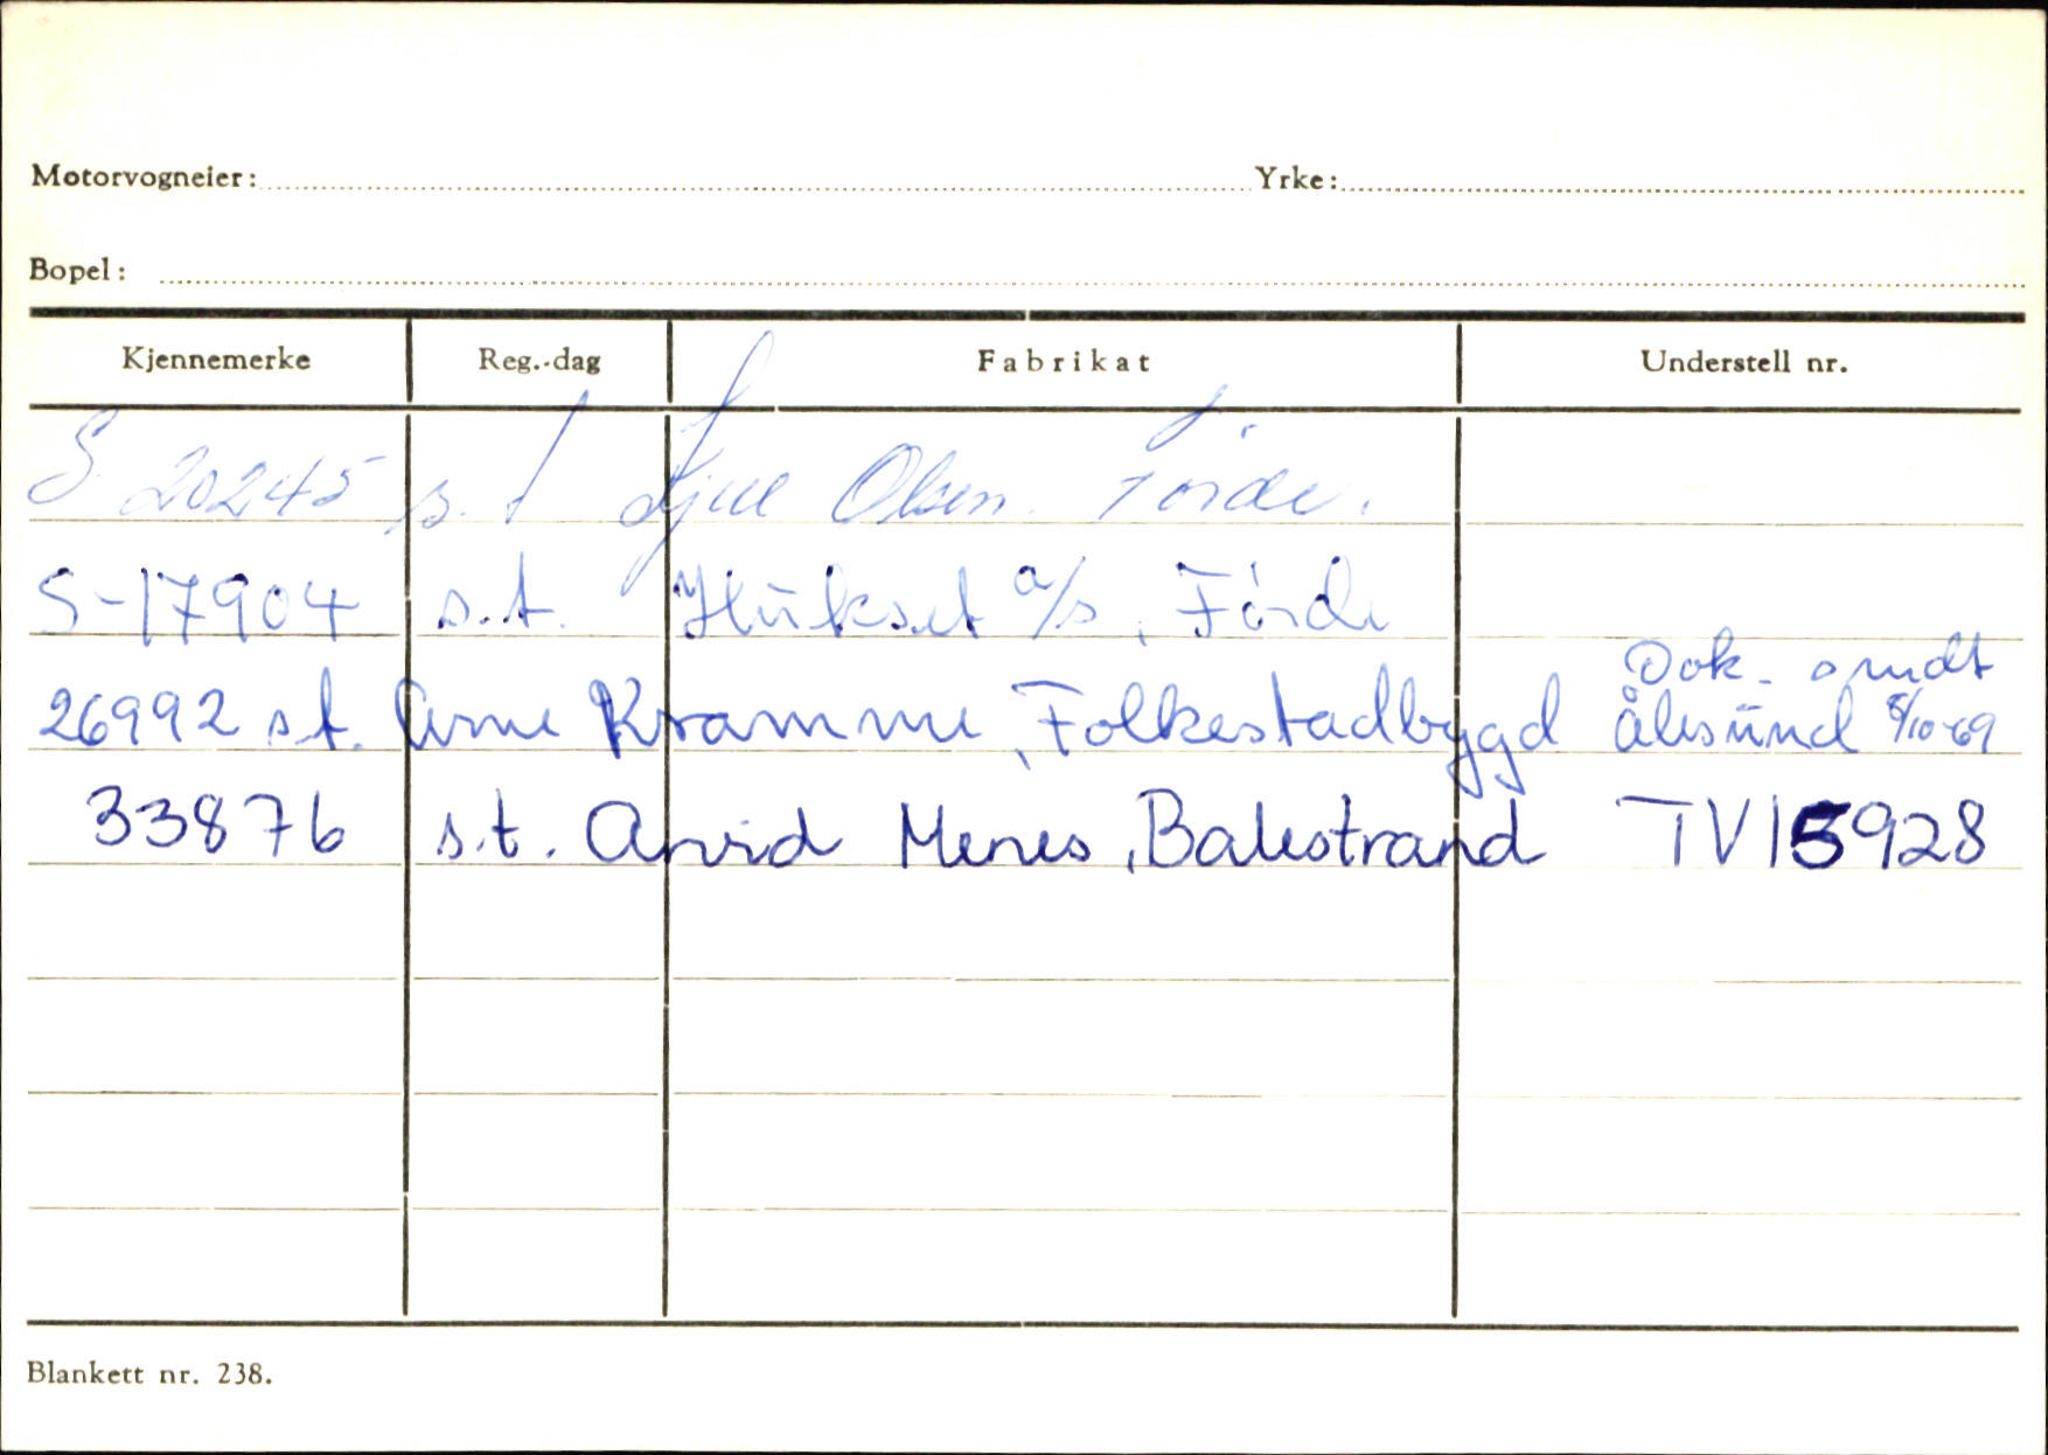 Motorvogneier: Yrke:
Bopel:
Kjennemerke Reg.-dag Fabrikat Understell nr.
S 20245 s.t Olsen Førde.
S-17904 s.t. a/s, Førde
Dok. omdt
26992 s.t. Arne Kramme, Folkestadbygd Ålesund 8/10-69
33876 s.t. Arvid Menes, Balestrand TV15928
Blankett nr. 238.